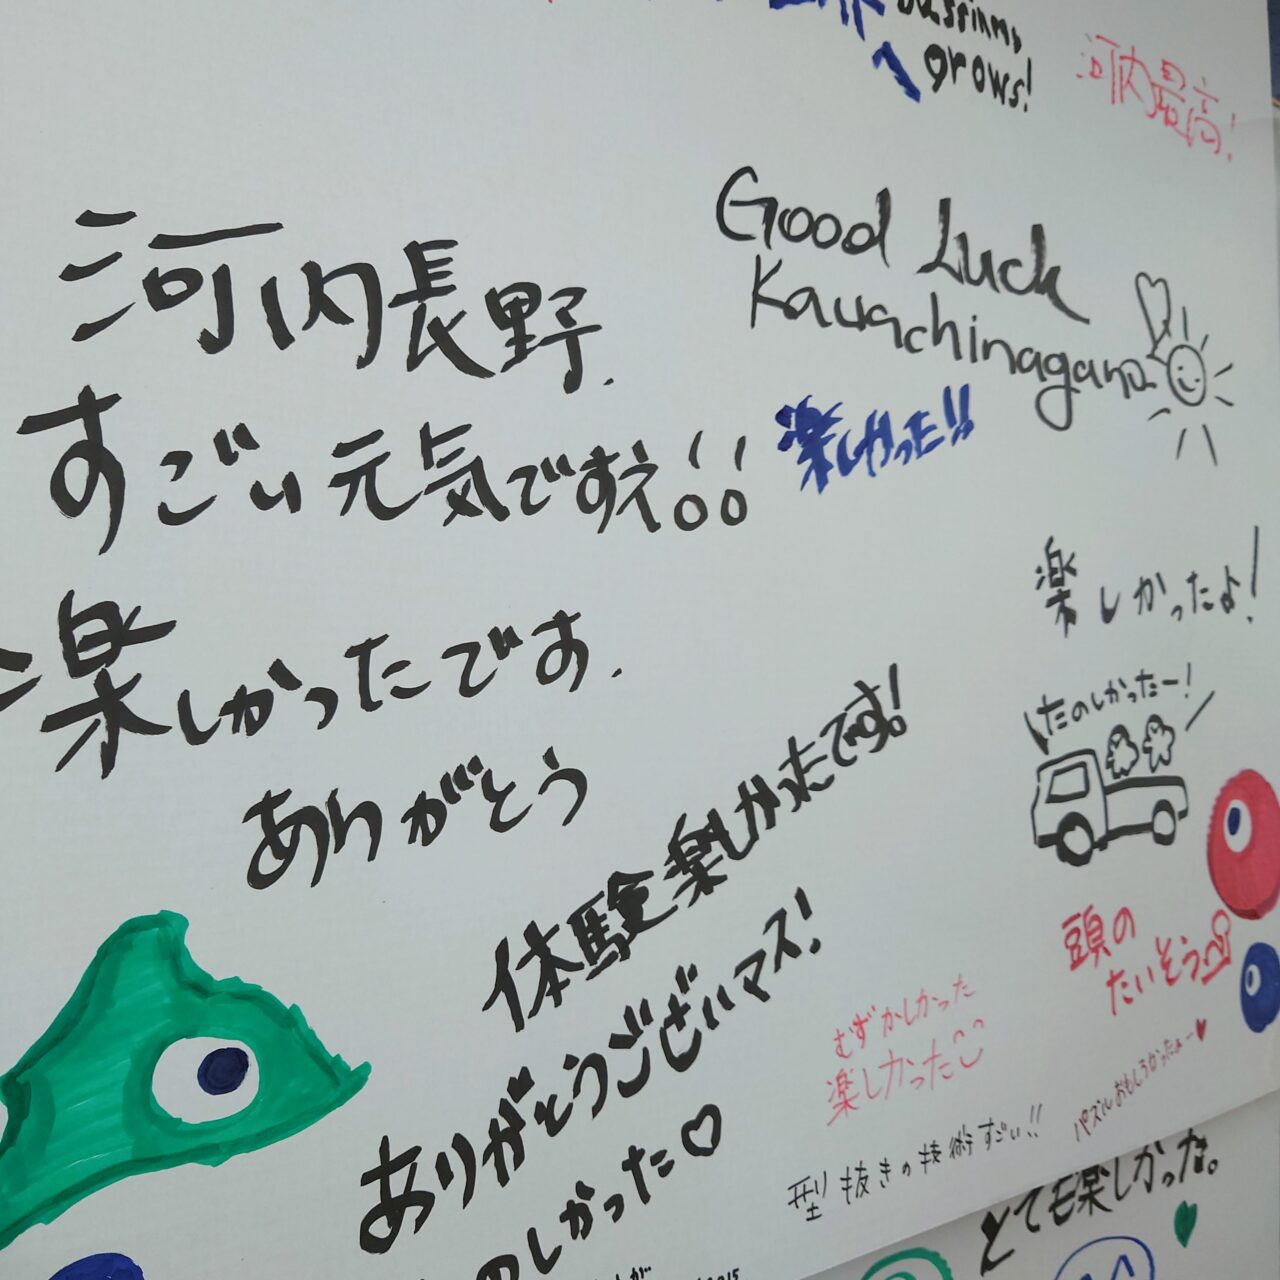 grows!
河内最高!
Good Luck
Kawachinagano
河内長野.
すごい元気ですえ!!
楽しかった!!
楽しかったよ!
楽しかったです.
ありがとう
たのしかったー!
体験楽しかったです!
ありがとうございマス!
のしかった♡
頭の
たいそう
むずかしかった
楽しかった
パズルおもしろかったよー♥
型抜きの技術すごい!!
とても楽しかった。